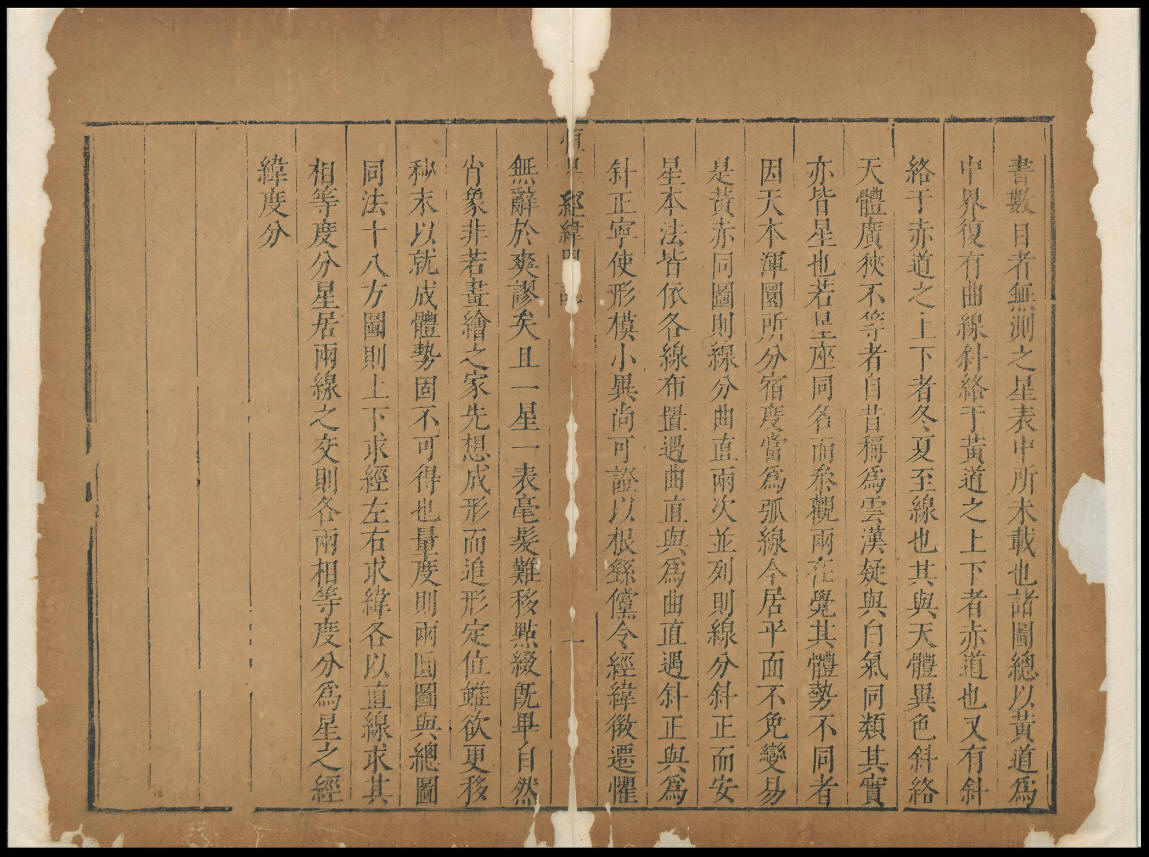 書數目者無測之星表中所未載也諸圖總以黃道為
中界復有曲線斜絡于黃道之上下者赤道也又有斜
絡于赤道之上下者冬夏至線也其與天體異色斜絡
天體廣狹不等者自昔稱為雲漢疑與白氣同類其實
亦皆星也若星座同名而叅觀兩在覺其體勢不同者
因天本渾圜所分宿度當為弧線令居平面不免變易
是黃赤同圖則線分曲直兩次並列則線分斜正而安
星本法皆依各線布置遇曲直與為曲直遇斜正與為
針正寧使形模小異尚可證以根繇儻令經緯微遷懼
恒星經緯圖說 十
無辭於爽謬矣且一星一表毫髮難移點綴旣畢自然
肖象非若畫繪之家先想成形而追形定位雖欲更移
秒末以就成體勢固不可得也量度則兩圓圖與總圖
同法十八方圖則上下求經左右求緯各以直線求其
相等度分星居兩線之交則各兩相等度分為星之經
緯度分